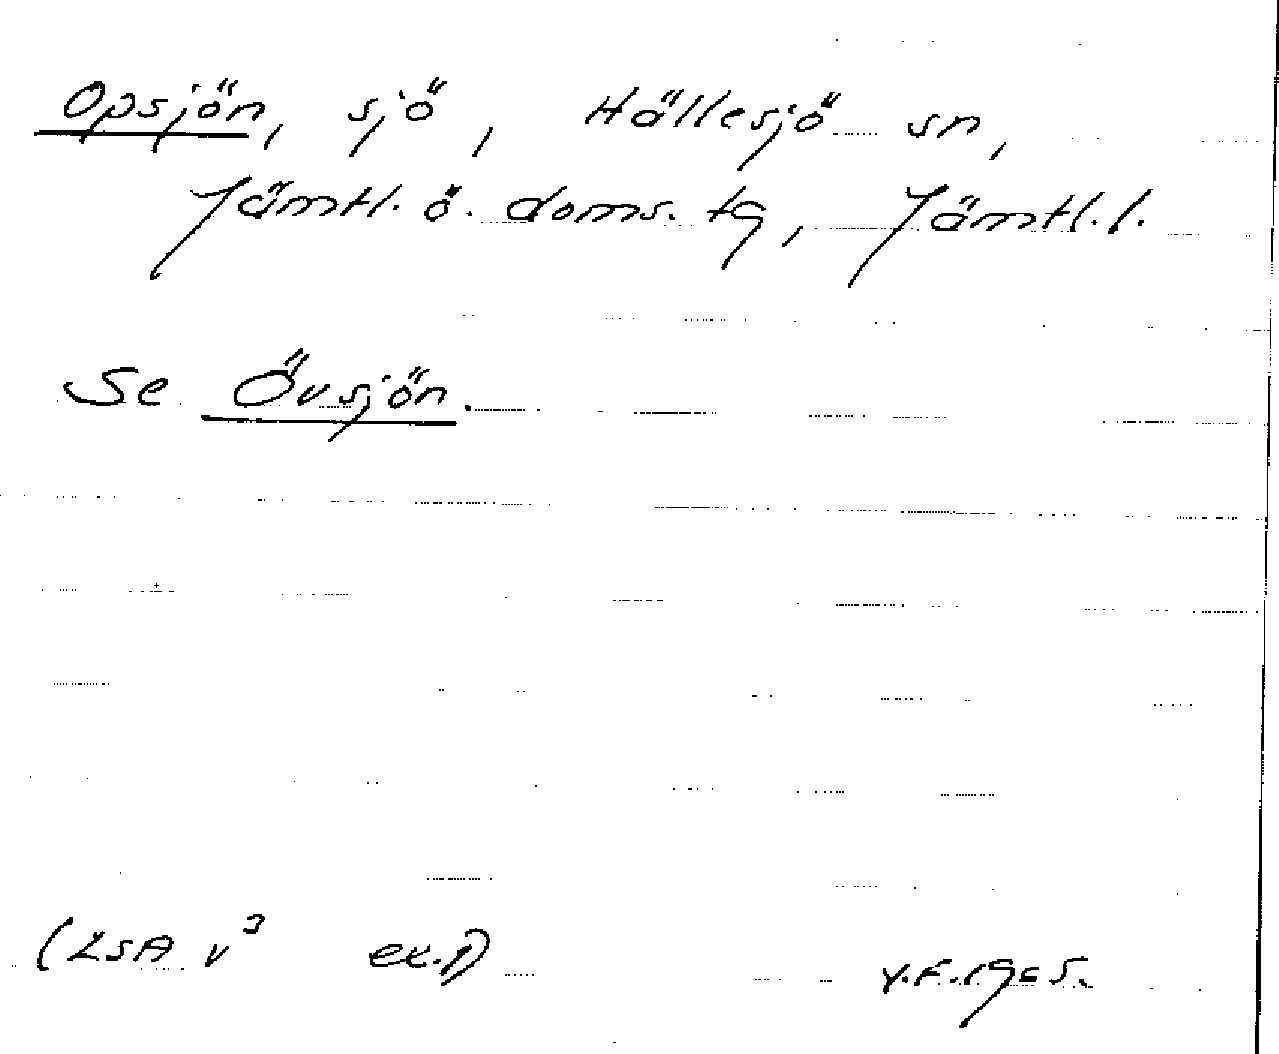 Opsjön, sjö, Hällesjö sn,
Jämtl. ö. doms. tg, Jämtl. l.
Se Övsjön.
(LSA v³ ex. 1)
Y.F. 1965.